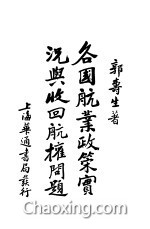 郭壽生著
各國航業政策實
況與收回航權問題
上海華通書局發行
Chaoxing.com